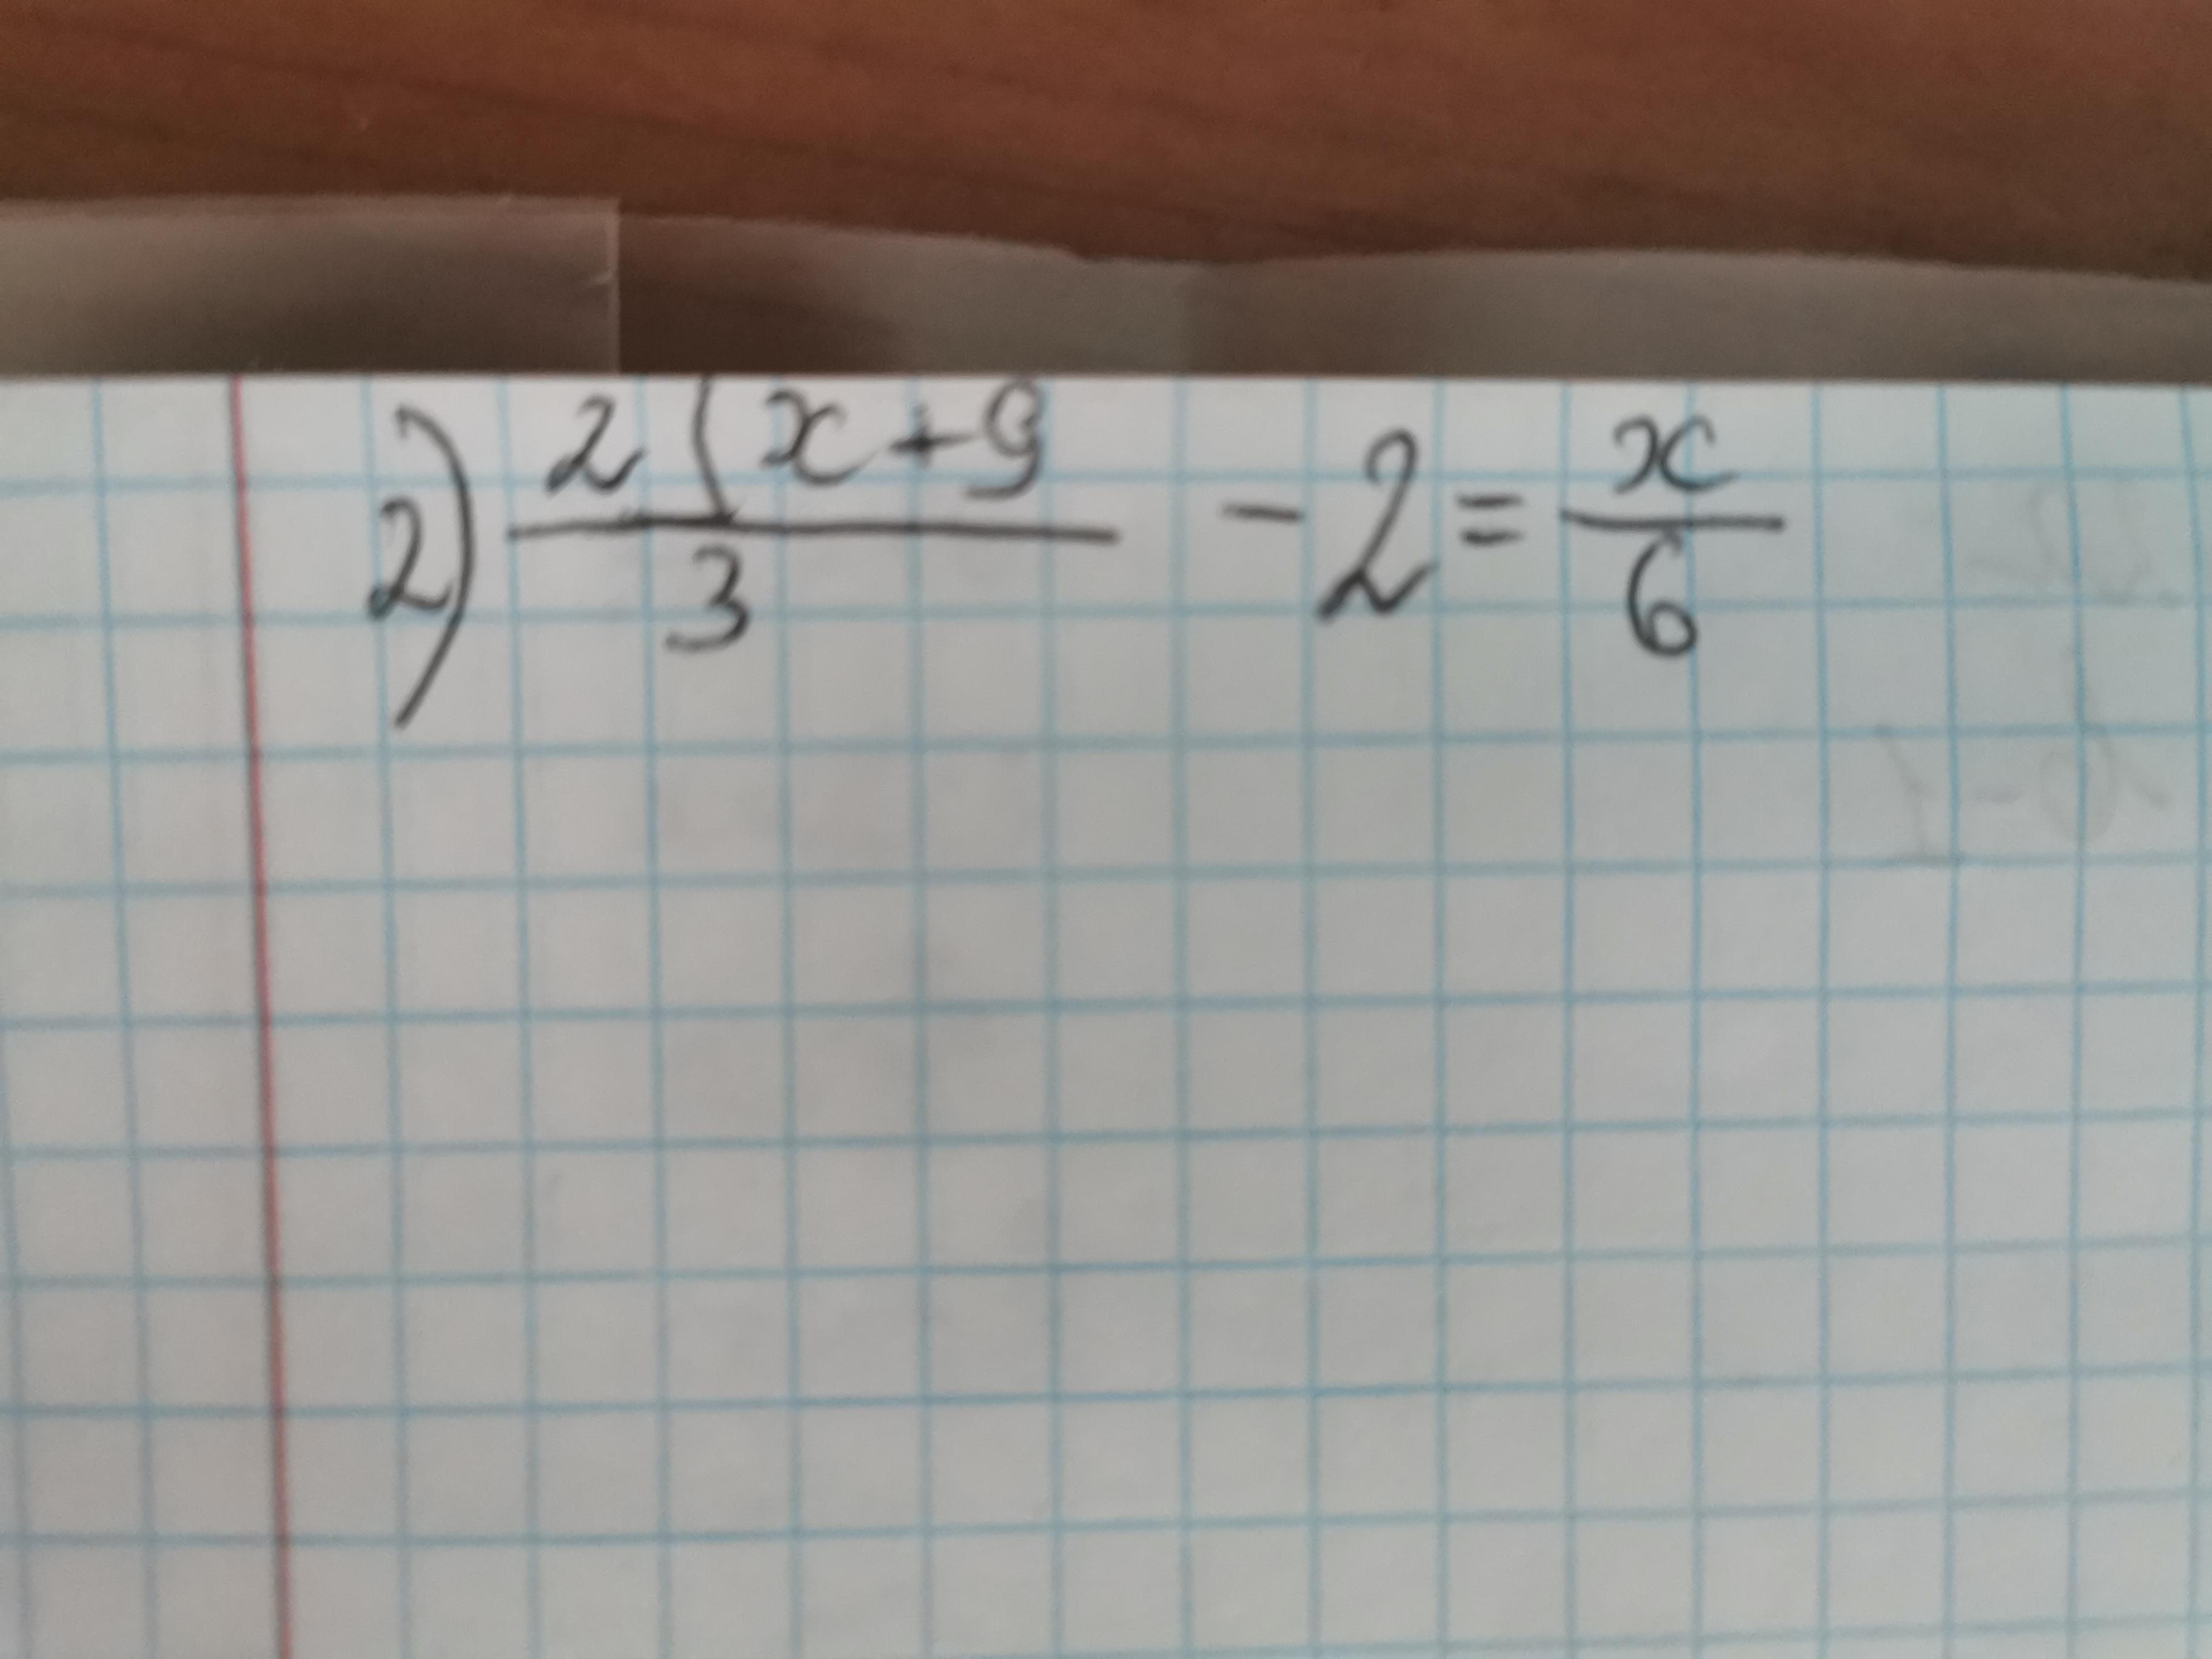 2) \frac{2(x+9}{3} -2=\frac{x}{6}